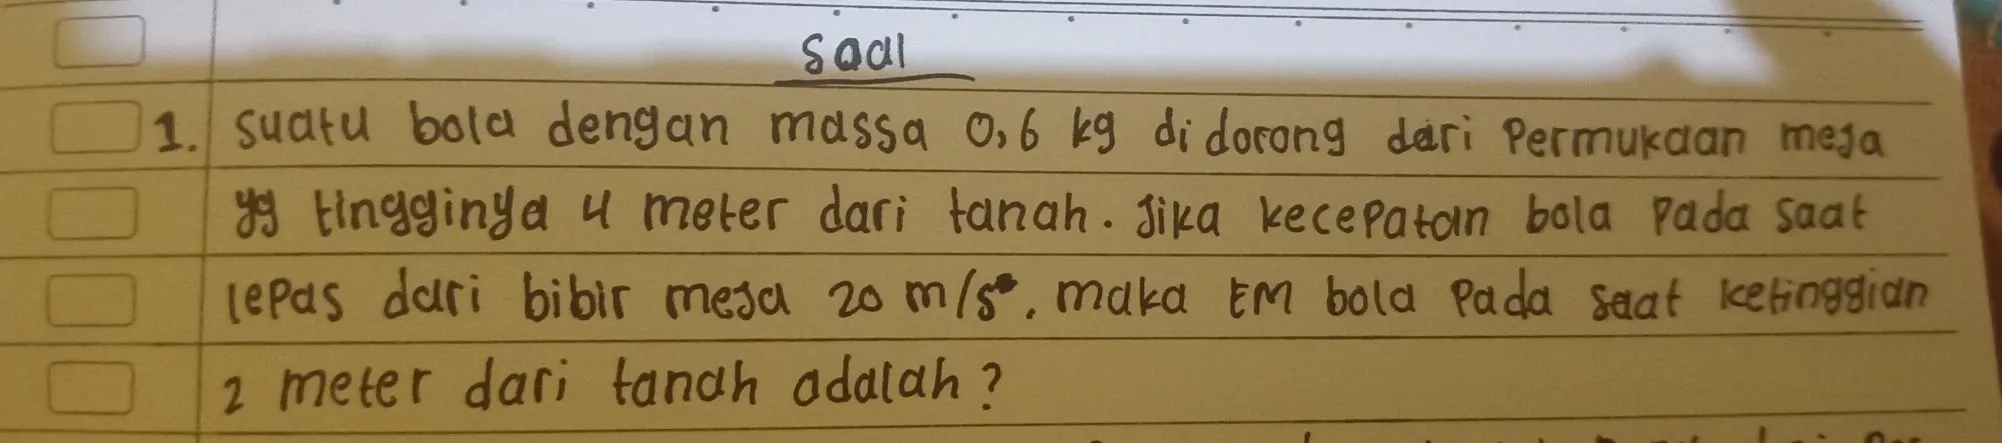 Soal
1. suatu bola dengan massa 0,6 kg di dorong dari Permukaan meja
yg tingginya 4 meter dari tanah. Jika kecepatan bola Pada saat
lepas dari bibir meja 20 m/s. maka EM bola Pada saat ketinggian
2 meter dari tanah adalah?